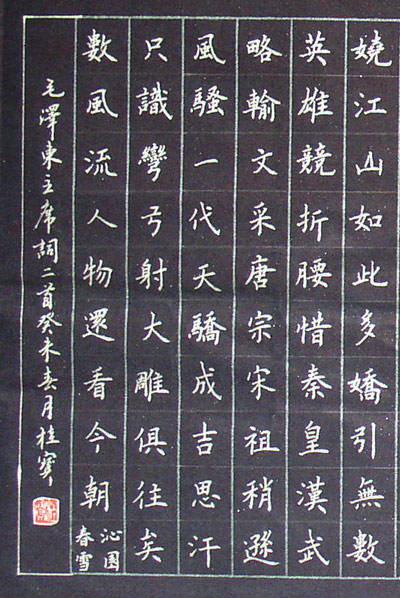 嬈江山如此多嬌引無數
英雄競折腰惜秦皇漢武
略輸文采唐宗宋祖稍遜
風騷一代天驕成吉思汗
只識彎弓射大雕俱往矣
數風流人物還看今朝
沁园
春雪
毛澤東主席詞二首癸未春月桂寶